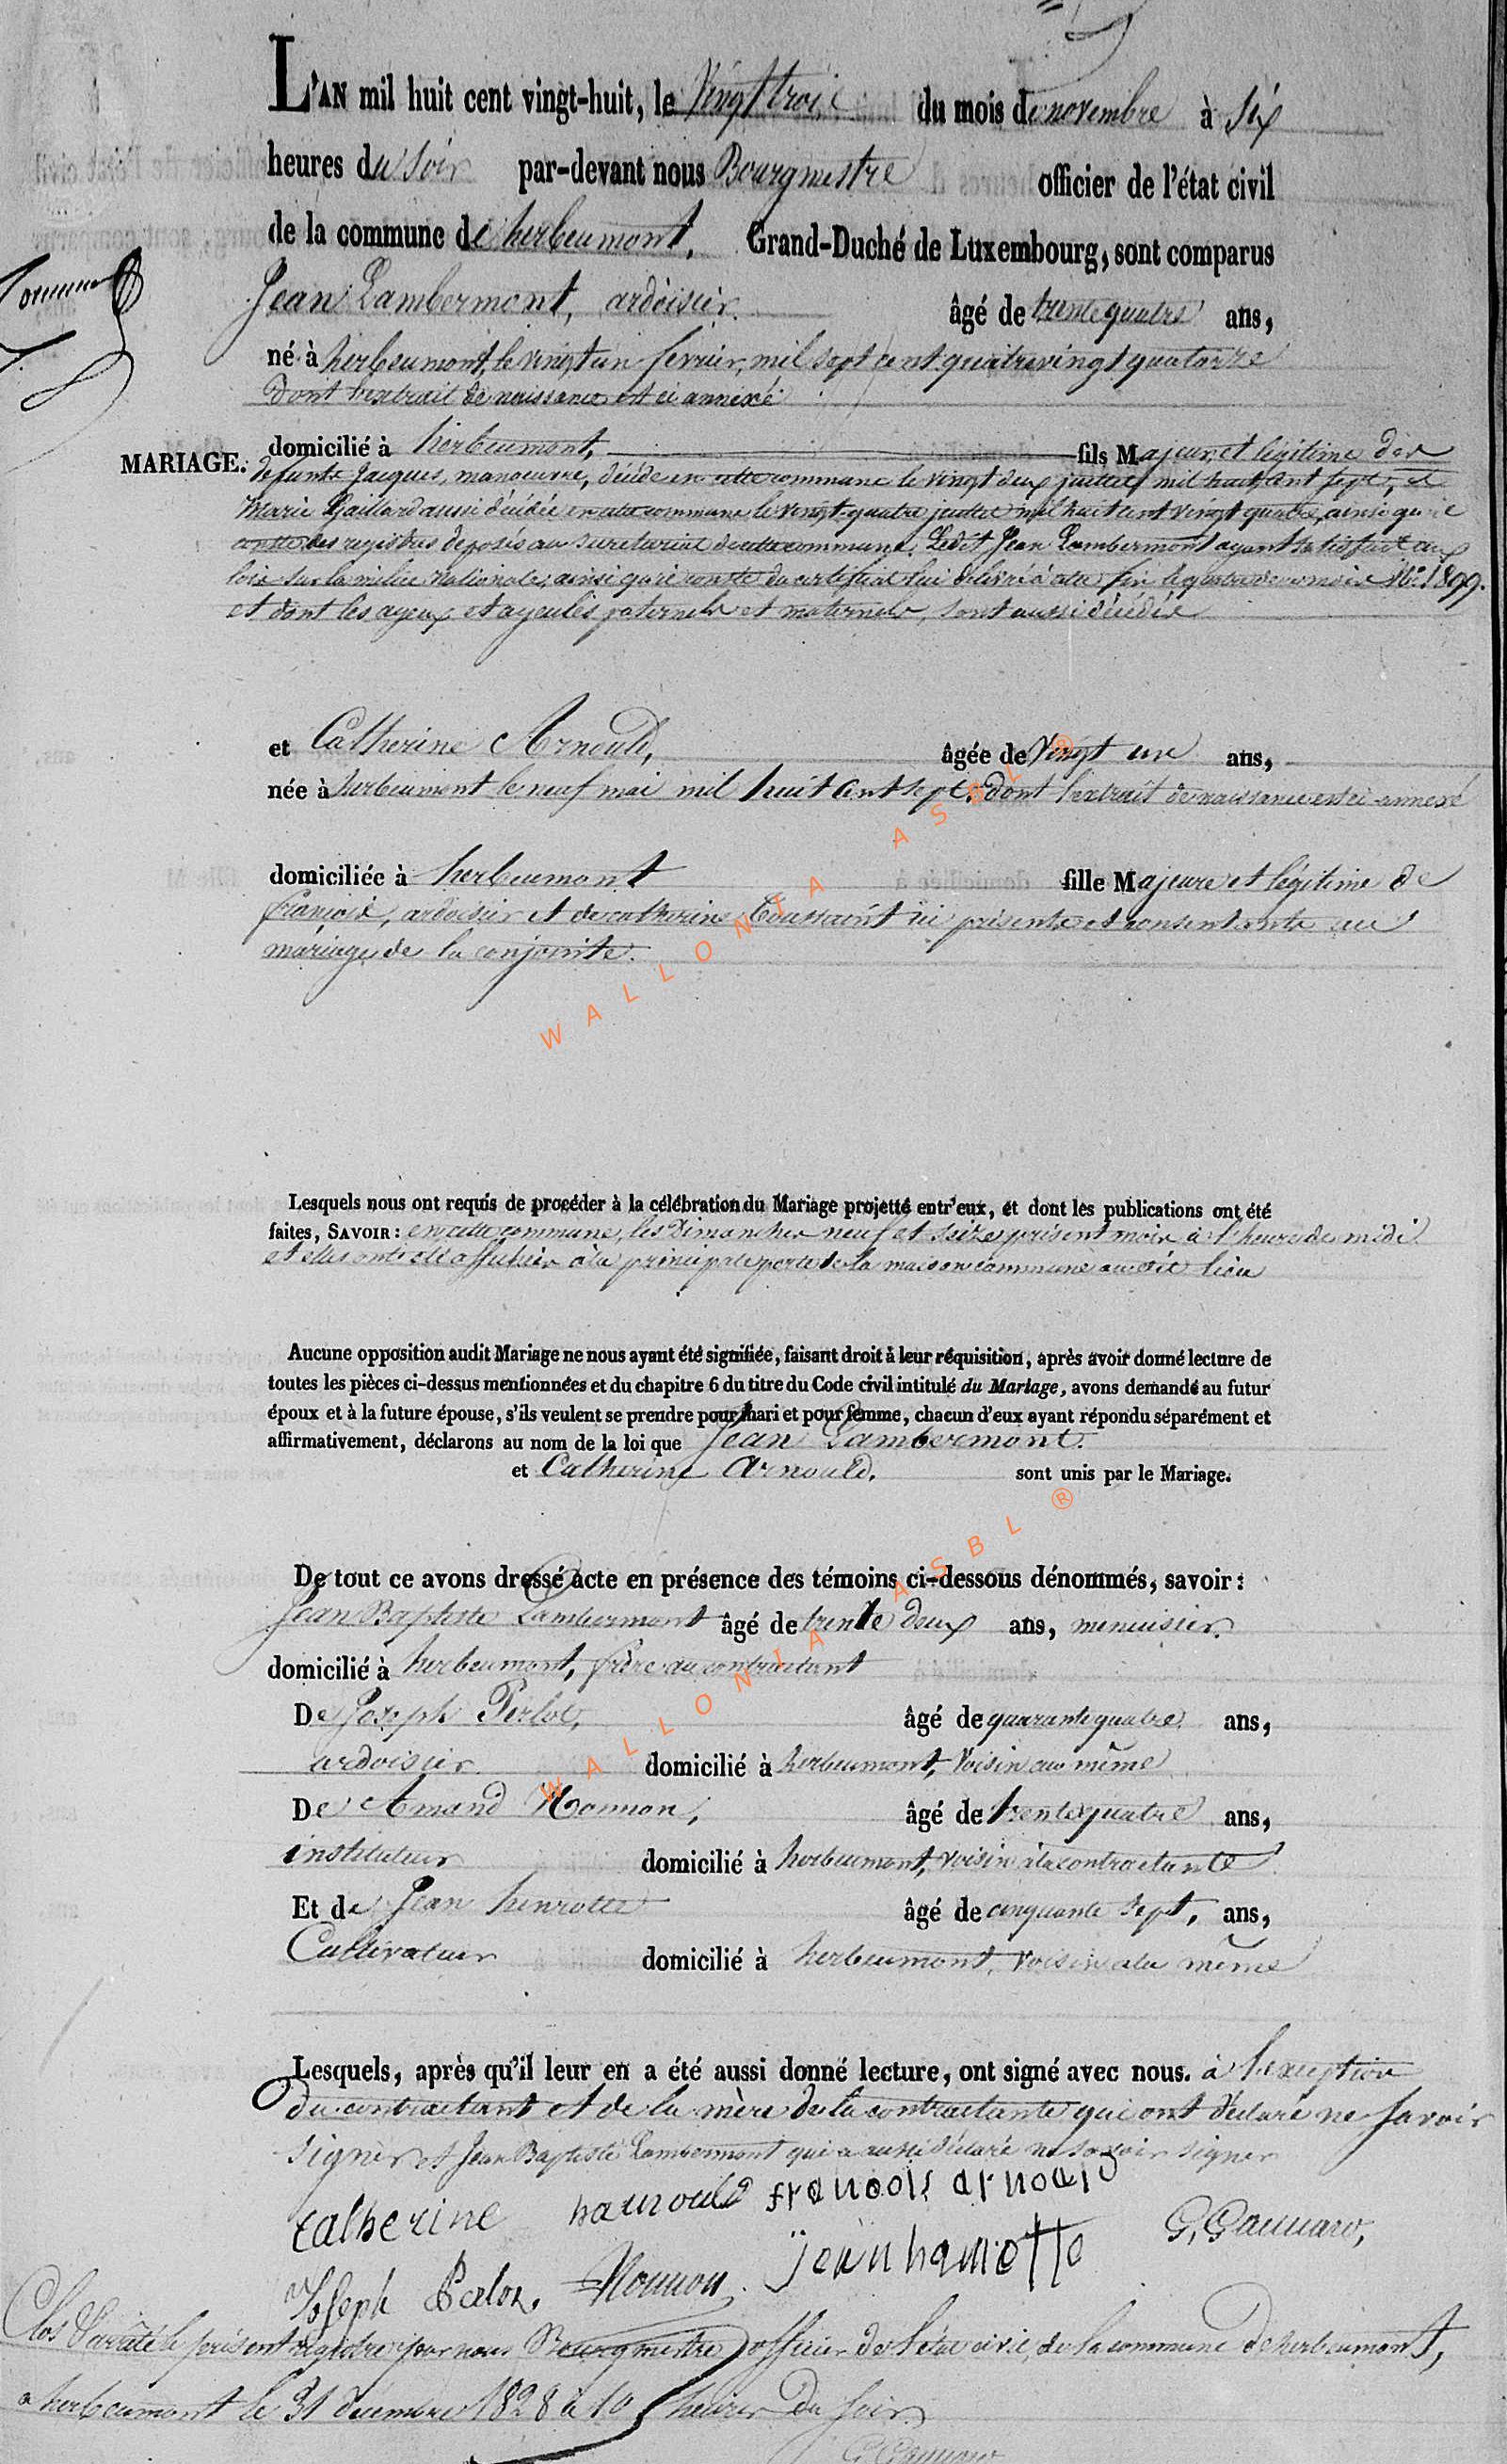 L'AN mil huit cent vingt-huit, le Vingt trois du mois de novembre à six
heures du soir par-devant nous Bourgmestre officier de l'état civil
de la commune de herbeumont, Grand-Duché de Luxembourg, sont comparus
Jean Lambermont, ardoisier. âgé de trente quatre ans,
né à herbeumont, le vingt un fevrier, mil sept cent quatrevingt quatorze
dont l'extrait de naissance est ci annexé
MARIAGE.
domicilié à herbeumont, fils Majeur et légitime de
defunts Jacques, manoeuvre, décédé en cette commune le vingt deux juillet mil huit cent sept, et
Marie Gaillard aussi décédée en cette commune le vingt quatre juillet mil huit cent vingt quatre, ainsi qu'il
conste des registres deposés au secretariat de cette commune. Ledit Jean Lambermont ayant satisfait aux
lois sur la milice nationale, ainsi qu'il conste du certificat lui delivré à cette fin le quatre de ce mois N° 1899.
et dont les ayeux et ayeules paternels et maternels, sont aussi décédés
et Catherine Arnould, âgée de Vingt un ans,
née à herbeumont le neuf mai mil huit cent sept, dont l'extrait de naissance est ci-annexé
domiciliée à herbeumont fille Majeure et légitime de
françois, ardoisier et de catherine Toussaint ici présents et consentants au
mariage de la conjointe.
WALLONIA ASBL ®
Lesquels nous ont requis de procéder à la célébration du Mariage projetté entr'eux, et dont les publications ont été
faites, SAVOIR: en cette commune, les Dimanches neuf et seize présent mois à l'heure de midi
et elles ont été affichées à la principale porte de la maison commune audit lieu
Aucune opposition audit Mariage ne nous ayant été signifiée, faisant droit à leur réquisition, après avoir donné lecture de
toutes les pièces ci-dessus mentionnées et du chapitre 6 du titre du Code civil intitulé du Mariage, avons demandé au futur
époux et à la future épouse, s'ils veulent se prendre pour mari et pour femme, chacun d'eux ayant répondu séparément et
affirmativement, déclarons au nom de la loi que Jean Lambermont.
et Catherine Arnould. sont unis par le Mariage.
De tout ce avons dressé acte en présence des témoins ci-dessous dénommés, savoir:
Jean Baptiste Lambermont âgé de trente deux ans, menuisier.
domicilié à herbeumont, frère au contractant
De Joseph Perlot, âgé de quarante quatre ans,
ardoisier domicilié à herbeumont, voisin au même
De Amand Nonnon, âgé de trente quatre ans,
instituteur domicilié à herbeumont, voisin à la contractante
Et de Jean henrotte âgé de cinquante sept, ans,
Cultivateur domicilié à herbeumont, voisin a la même
WALLONIA ASBL ®
Lesquels, après qu'il leur en a été aussi donné lecture, ont signé avec nous. à l'exception
du contractant et de la mère de la contractante qui ont déclaré ne savoir
signer et Jean Baptiste Lambermont qui a aussi déclaré ne savoir signer
catherine francois arnould
Joseph Nonnon
Clos & arrêté le présent registre par nous Bourgmestre officier de l'état civil de la commune de herbeumont,
a herbeumont le 31 decembre 1828 à 10 heures du soir